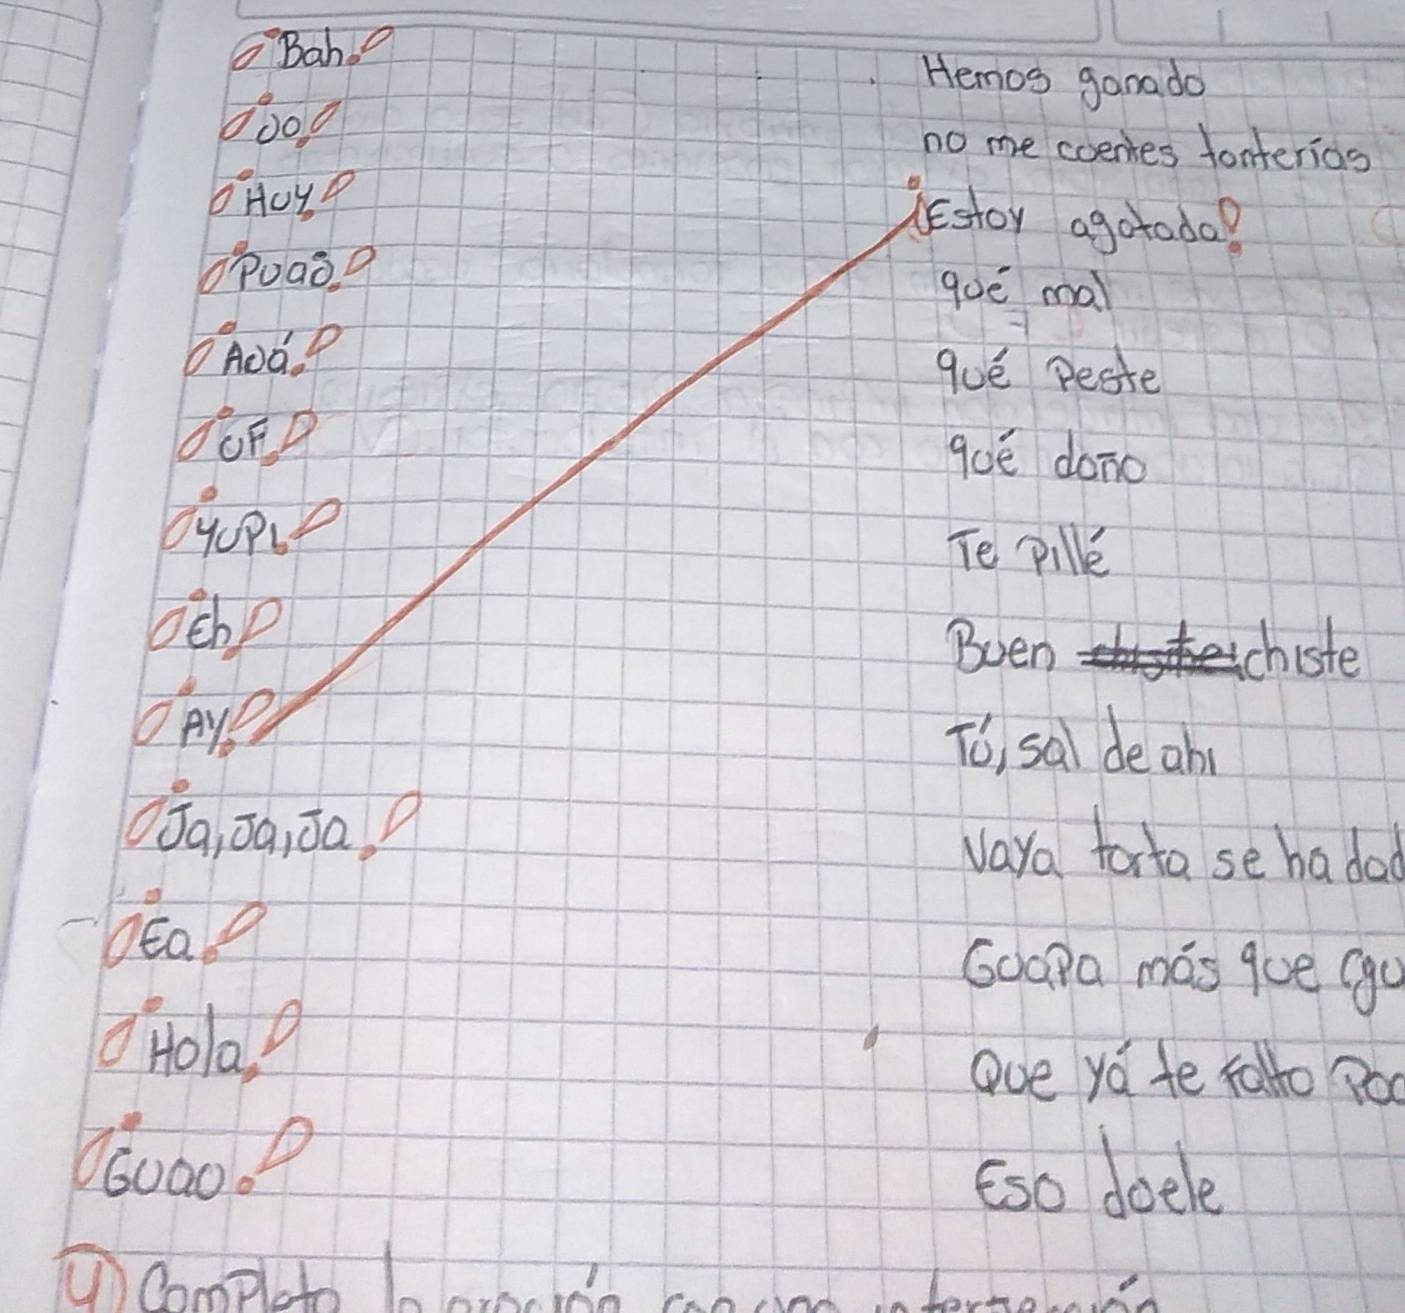 ¡Bah!
¡oo!
¡Huy!
¡Puaō!
¡Auá!
¡UF!
¡YUPi!
¡Eh!
¡AY!
¡Ja, Ja, Ja!
¡Ea!
¡Hola!
¡Guao!
Hemos ganado
no me cuentes tonterías
¡Estoy agotada!
qué mal
qué Peste
qué daño
Te Pillé
Buen chiste
Tú, sal de ahi
Vaya torta se ha dad
Guapa más que
Que yá te falto Poc
Eso duele
4) Completo la oración con una